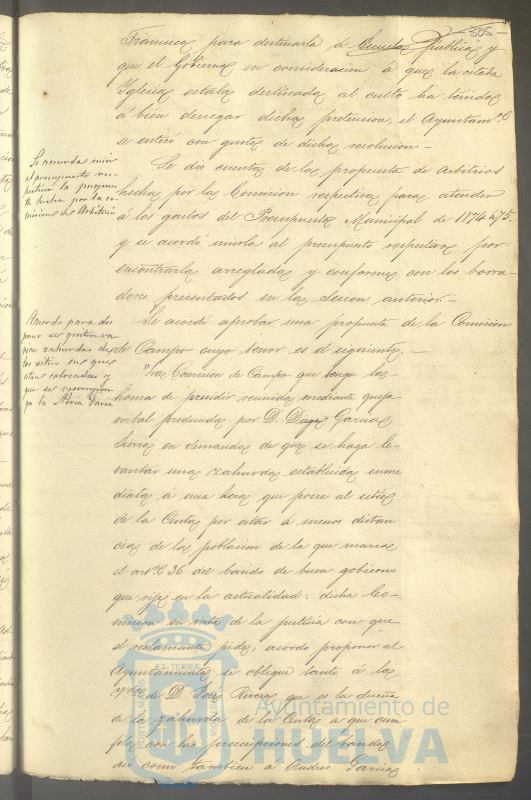 305
Francisco para destinarla á Escuela pública y
que el Gobierno en consideracion á que la citada
Yglesia estaba destinada al culto ha tenido
á bien denegar dicha pretension, el Ayuntam.to
se enteró con gusto de dicha resolucion.-
Se dió cuenta de la propuesta de Arbitrios
hecha por la Comision respectiva para atender
á los gastos del Presupuesto Municipal de 1874 á 75.
y se acordó unirla al presupuesto respectivo por
encontrarla arreglada y conforme con los borra-
dores presentados en la sesion anterior.-
Se acordó aprobar una propuesta de la Comision
de Campo cuyo tenor es el siguiente.-
"La Comision de Campo que tengo la
honra de presidir reunida mediante queja
verbal producida por D. Diego Garcia
en demanda de que se haga le-
vantar una zahurda establecida inme
diata a una hera que posee al sitio
de la Cinta por estar á menos distan
cia de la poblacion de la que marca
el art.o 36 del bando de buen gobierno
que rije en la actualidad: dicha Co-
mision en vista de la justicia con que
el reclamante pide, acordó proponer al
Ayuntamiento se oblique tanto á la
V.da de D. José Rivera que es la dueña
a la zahurda de la Cinta a que cum
pla con las prescripciones del bando
asi como tambien a Andres Garcia
Se acuerda unir
al presupuesto res-
pectivo la propues-
ta hecha por la Co-
mision de Arbitrios
Acuerdo para dis
poner se quiten va
rias zahurdas de
los sitios en que
están colocadas y
que se reconozca
la Noria
Ayuntamiento de
HUELVA